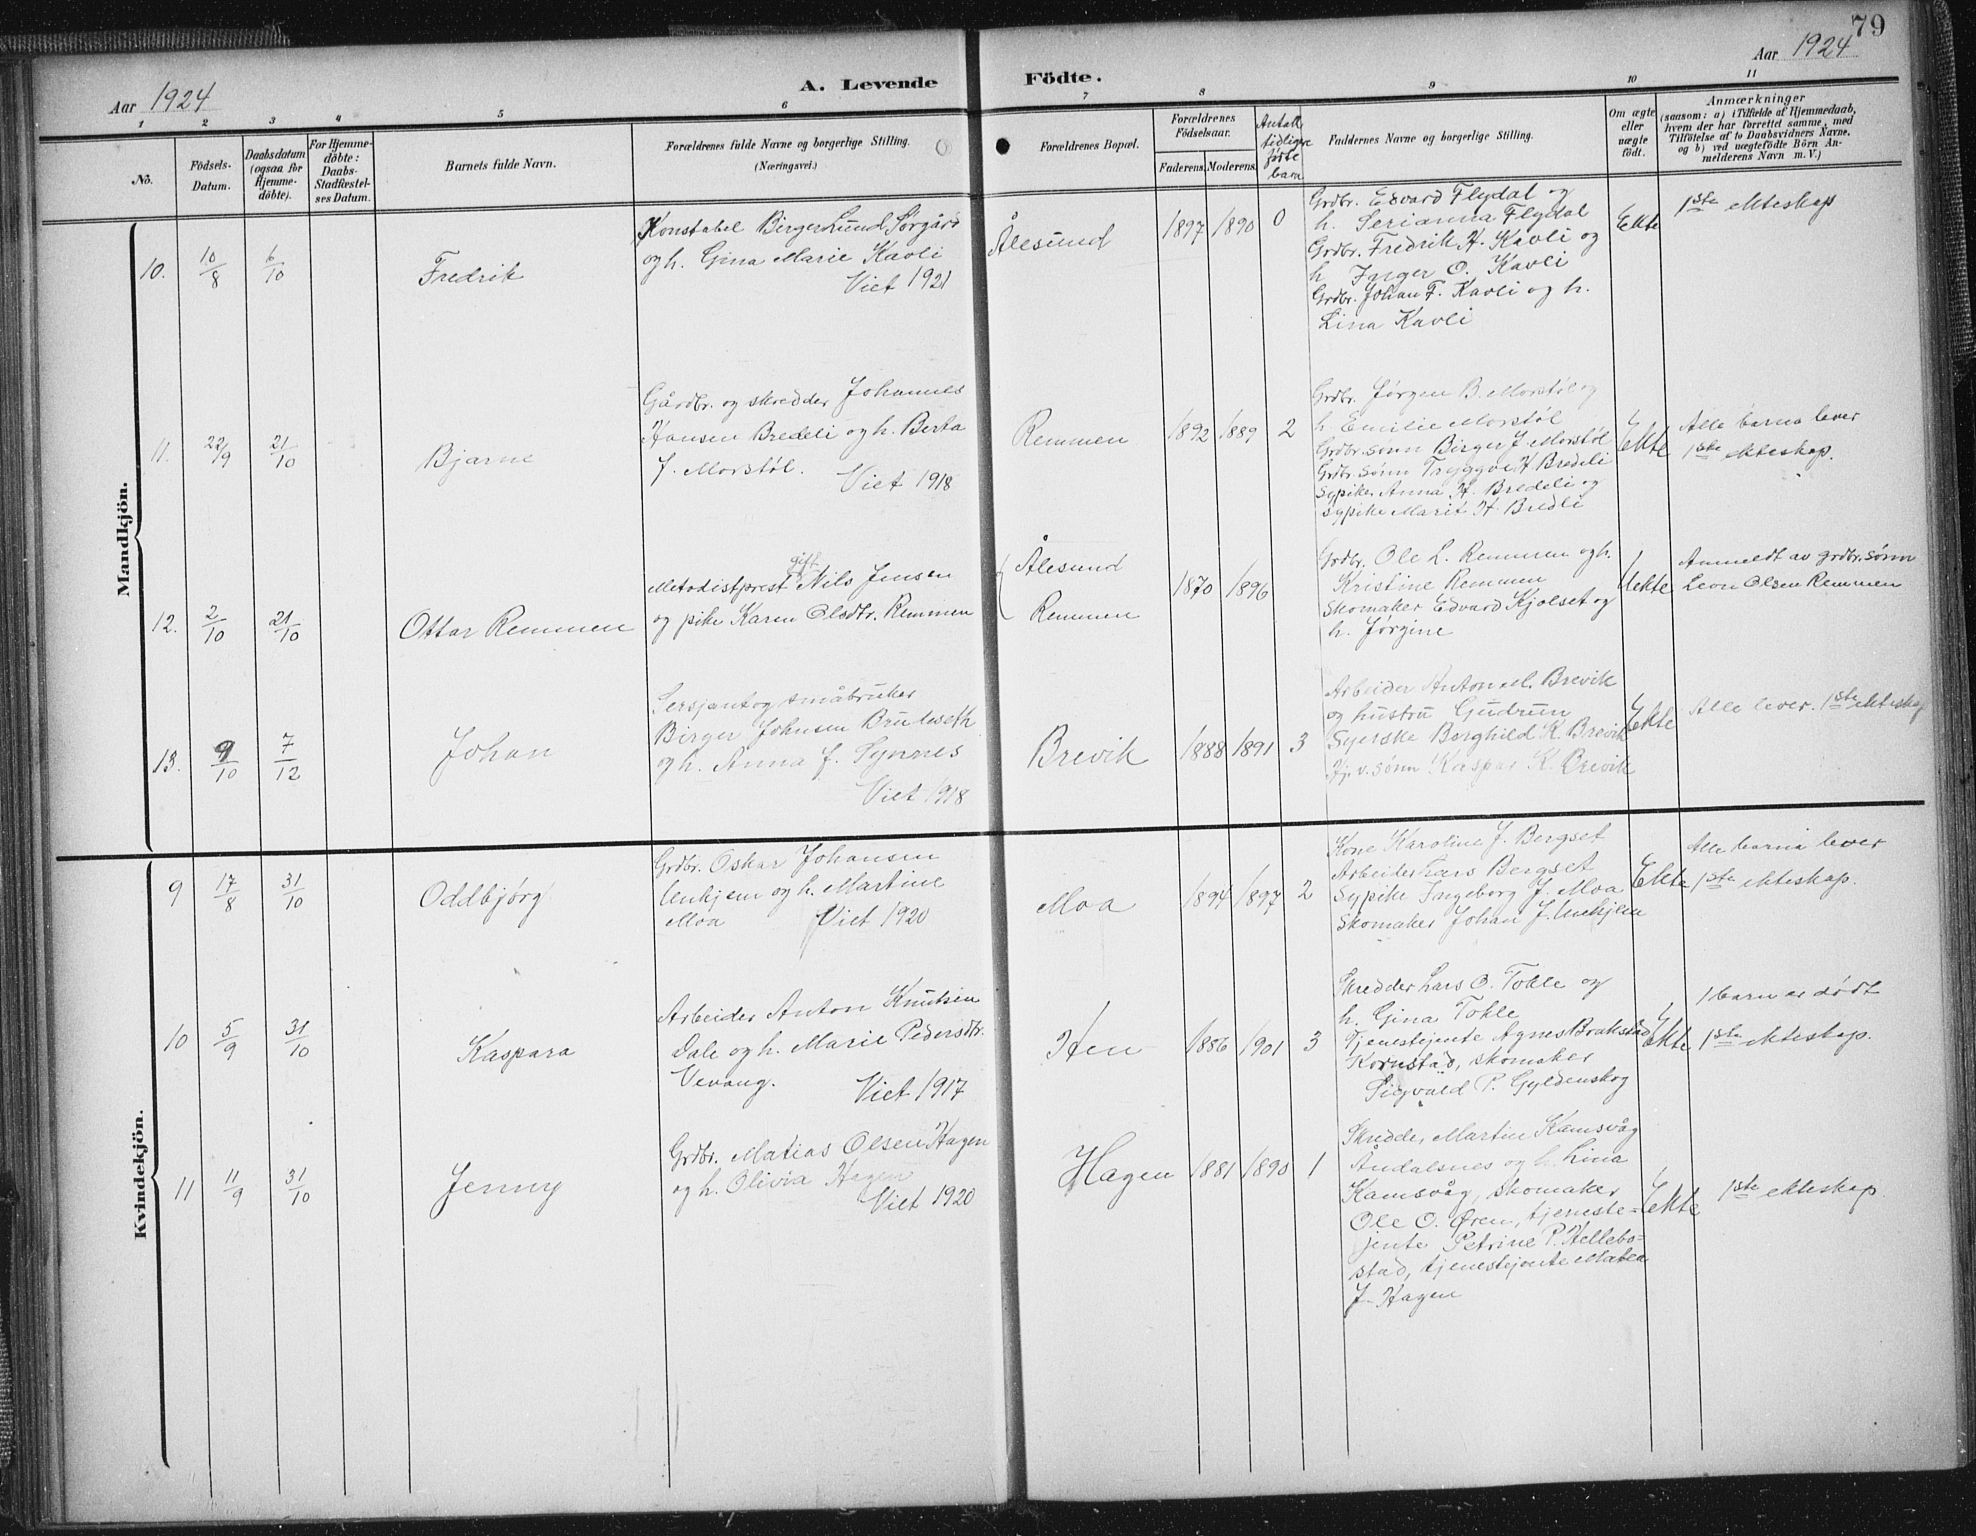 79
Aar 1924
A. Levende Födte.
Aar 1924
1 2 3 4 5 6 7 8 9 10 11
No.
Födsels-
Datum.
Daabsdatum
(ogsaa for
Hjemme-
döbte).
For Hjemme-
döbte:
Daabs-
Stadfæstel-
ses Datum.
Barnets fulde Navn.
Forældrenes fulde Navne og borgerlige Stilling.
(Næringsvei.)
Forældrenes Bopæl.
Forældrenes
Födselsaar.
Faderens. Moderens.
Antal
tidligere
fødte
barn
Faddernes Navne og borgerlige Stilling.
Om ægte
eller
uægte
födt.
Anmærkninger
(saasom: a) i Tilfælde af Hjemmedaab,
hvem der har forrettet samme, med
Tilföielse af to Daabsvidners Navne,
og b) ved uægtefödte Börn An-
melderens Navn m. V.)
Mandkjön.
10.
10/8
6/10
Fredrik
Konstabel Birger Lund Sørgård
og h. Gina Marie Kavli
Viet 1921
Ålesund
1897 1890 0
Grdbr. Edvard Flydal og
h. Serianna Flydal
Grdbr. Fredrik H. Kavli og
h Inger O. Kavli
Grdbr. Johan F. Kavli og h.
Lina Kavli
Ekte
1ste ekteskap
11.
22/9
21/10
Bjarne
Gårdbr. og skredder Johannes
Hansen Bredeli og h. Berta
J. Morstøl.
Viet 1918
Remmen
1892 1889 2
Grdbr. Jørgen B. Morstøl og
h. Emilie Morstøl
Grdbr. sønn Birger J. Morstøl
Grdbr. sønn Tryggve H. Bredeli
Sypike Anna H. Bredeli og
sypike Marit H. Bredli
Ekte
Alle barna lever
1ste ekteskap.
12.
2/10
21/10
Ottar Remmen
gift
Metodistprest Nils Jensen
og pike Karen Olsdtr. Remmen
Ålesund
Remmen
1870 1896
Grdbr. Ole L. Remmen og h.
Kristine Remmen
Skomaker Edvard Kjølset og
h. Jørgine
Uekte
Anmeldt av grdbr. sønn
Leon Olsen Remmen
13.
9/10
7/12
Johan
Sersjant og småbruker
Birger Johnsen Bruleseth
og h. Anna J. Synnes
Viet 1918
Brevik
1888 1891 3
Arbeider Anton M. Brevik
og hustru Gudrun
Syerske Borghild K. Brevik
Hj. v. sønn Kaspar K. Brevik
Ekte
Alle lever. 1ste ekteskap
Kvindekjön.
9
17/8
31/10
Oddbjørg
Grdbr. Oskar Johansen
Unhjem og h. Martine
Moa
Viet 1920
Moa
1894 1897 2
Kone Karoline J. Bergset
Arbeider Lars Bergset
Sypike Ingeborg J. Moa
Skomaker Johan J. Unhjem
Ekte
Alle barna lever
1ste ekteskap.
10
5/9
31/10
Kaspara
Arbeider Anton Knutsen
Dale og h. Marie Pedersdtr.
Vevang.
Viet 1917
Hen
1886 1901 3
Skredder Lars O. Tokle og
h. Gina Tokle
Tjenestejente Agnes Brakstad
Kornstad, skomaker
Sigvald P. Gyldenskog
Ekte
1 barn er dødt
1ste ekteskap.
11
11/9
31/10
Jenny
Grdbr. Matias Olsen Hagen
og h. Olivia Hagen
Viet 1920
Hagen
1881 1890 1
Skredder Martin Kamsvåg
Åndalsnes og h. Lina
Kamsvåg, skomaker
Ole O. Øren, tjeneste-
jente Petrine P. Hellebo-
stad, tjenestejente Matea
J. Hagen
Ekte
1ste ekteskap.